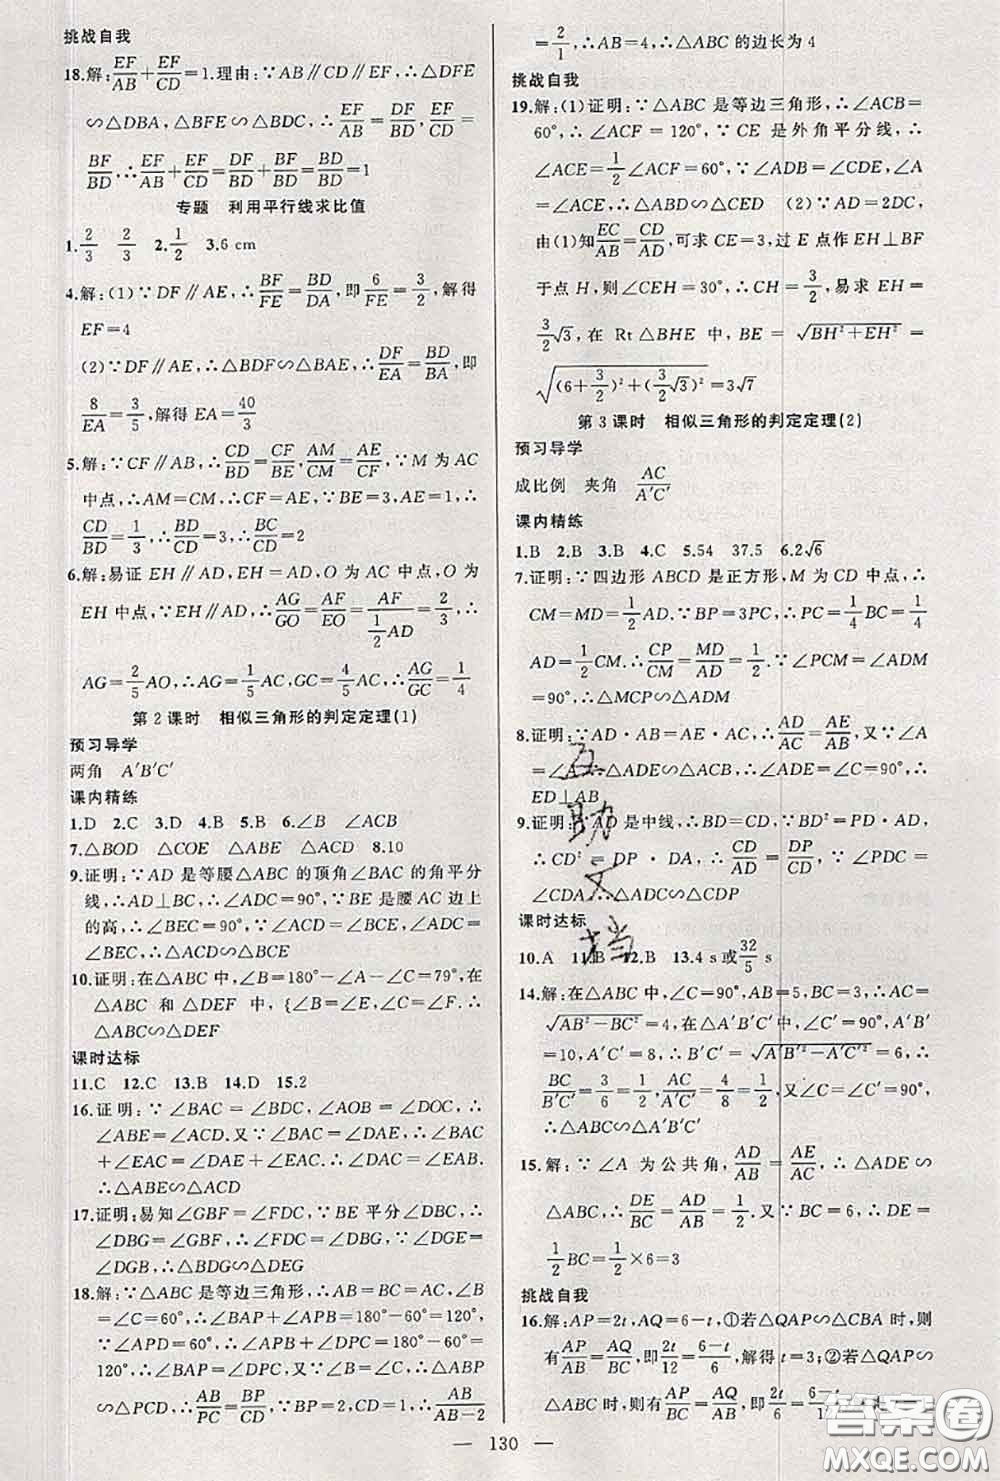 挑战自我
18.解:EF/AB+EF/CD=1.理由:∵AB∥CD∥EF,∴△DFE
∽△DBA,△BFE∽△BDC,∴EF/AB=DF/BD,EF/CD=
BF/BD.∴EF/AB+EF/CD=DF/BD+BF/BD=BD/BD=1
专题 利用平行线求比值
1.2/3 2/3 2.1/2 3.6 cm
4.解:(1)∵DF∥AE,∴BF/FE=BD/DA,即6/FE=3/2,解得
EF=4
(2)∵DF∥AE,∴△BDF∽△BAE,∴DF/EA=BD/BA,即
8/EA=3/5,解得EA=40/3
5.解:∵CF∥AB,∴CD/BD=CF/BE,AM/CM=AE/CF,∵M为AC
中点,∴AM=CM,∴CF=AE,∵BE=3,AE=1,∴
CD/BD=1/3,∴BD/CD=3,∴BC/CD=2
6.解:易证EH∥AD,EH=AD,O为AC中点,O为
EH中点,∵EH∥AD,∴AG/GO=AF/EO=AF/(1/2 AD)=2/3,∴
AG=2/5AO,∴AG=1/5AC,GC=4/5AC,∴AG/GC=1/4
第2课时 相似三角形的判定定理(1)
预习导学
两角 A′B′C′
课内精练
1.D 2.C 3.D 4.B 5.B 6.∠B ∠ACB
7.△BOD △COE △ABE △ACD 8.10
9.证明:∵AD是等腰△ABC的顶角∠BAC的角平分
线,∴AD⊥BC,∴∠ADC=90°,∵BE是腰AC边上
的高,∴∠BEC=90°,∵∠ACD=∠BCE,∠ADC=
∠BEC,∴△ACD∽△BCE
10.证明:在△ABC中,∠B=180°-∠A-∠C=79°,在
△ABC和△DEF中,{∠B=∠E,∠C=∠F.∴
△ABC∽△DEF
课时达标
11.C 12.C 13.B 14.D 15.2
16.证明:∵∠BAC=∠BDC,∠AOB=∠DOC,∴
∠ABE=∠ACD.又∵∠BAC=∠DAE,∴∠BAC
+∠EAC=∠DAE+∠EAC.∴∠DAC=∠EAB.
∴△ABE∽△ACD
17.证明:易知∠GBF=∠FDC,∵BE平分∠DBC,∴
∠DBG=∠GBF,∴∠DBG=∠FDC,∵∠DGE=
∠DGB,∴△BDG∽△DEG
18.解:∵△ABC是等边三角形,∴AB=BC=AC,∠B
=∠C=60°,∴∠BAP+∠APB=180°-60°=120°,
∵∠APD=60°,∴∠APB+∠DPC=180°-60°=
120°,∴∠BAP=∠DPC,又∵∠B=∠C,∴△ABP
∽△PCD,∴AB/PC=BP/CD,∵BP=1,CD=2/3,∴AB/(AB-2
=2/1,∴AB=4,∴△ABC的边长为4
挑战自我
19.解:(1)证明:∵△ABC是等边三角形,∴∠ACB=
60°,∴∠ACF=120°,∵CE是外角平分线,∴
∠ACE=1/2∠ACF=60°,∵∠ADB=∠CDE,∠A
=∠ACE,∴△ABD∽△CED (2)∵AD=2DC,
由(1)知EC/AB=CD/AD,可求CE=3,过E点作EH⊥BF
于点H,则∠CEH=30°,∴CH=3/2,易求EH=
3/2√3,在Rt△BHE中,BE=√(BH²+EH²)=
√((6+3/2)²+(3/2√3)²)=3√7
第3课时 相似三角形的判定定理(2)
预习导学
成比例 夹角 AC/A′C′
课内精练
1.B 2.B 3.B 4.C 5.54 37.5 6.2√6
7.证明:∵四边形ABCD是正方形,M为CD中点,∴
CM=MD=1/2AD.∵BP=3PC,∴PC=1/4BC=1/4
AD=1/2CM.∴CP/CM=MD/AD=1/2,∵∠PCM=∠ADM
=90°,∴△MCP∽△ADM
8.证明:∵AD·AB=AE·AC,∴AD/AC=AE/AB,又∵∠A
=∠A,∴△ADE∽△ACB,∴∠ADE=∠C=90°,∴
ED⊥AB
9.证明:∵AD是中线,∴BD=CD,∵BD²=PD·AD,
∴CD²=DP·DA,∴CD/AD=DP/CD,∵∠PDC=
∠CDA,∴△ADC∽△CDP
互助文档
课时达标
10.A 11.B 12.B 13.4 s或32/5 s
14.解:在△ABC中,∠C=90°,AB=5,BC=3,∴AC=
√(AB²-BC²)=4,在△A′B′C′中,∠C′=90°,A′B′
=10,A′C′=8,∴B′C′=√(A′B′²-A′C′²)=6,∴
BC/B′C′=3/6=1/2,AC/A′C′=4/8=1/2,又∠C=∠C′=90°,
∴△ABC∽△A′B′C′
15.解:∵∠A为公共角,AD/AB=AE/AC,∴△ADE∽
△ABC,∴DE/BC=AD/AB=1/2.又∵BC=6,∴DE=
1/2BC=1/2×6=3
挑战自我
16.解:AP=2t,AQ=6-t,①若△APQ∽△CBA时,则
有AP/AB=AQ/BC,即2t/12=(6-t)/6,解得t=3;②若△QAP∽
△ABC时,则有AP/BC=AQ/AB,即2t/6=
— 130 —
答案圈
MXQE.COM